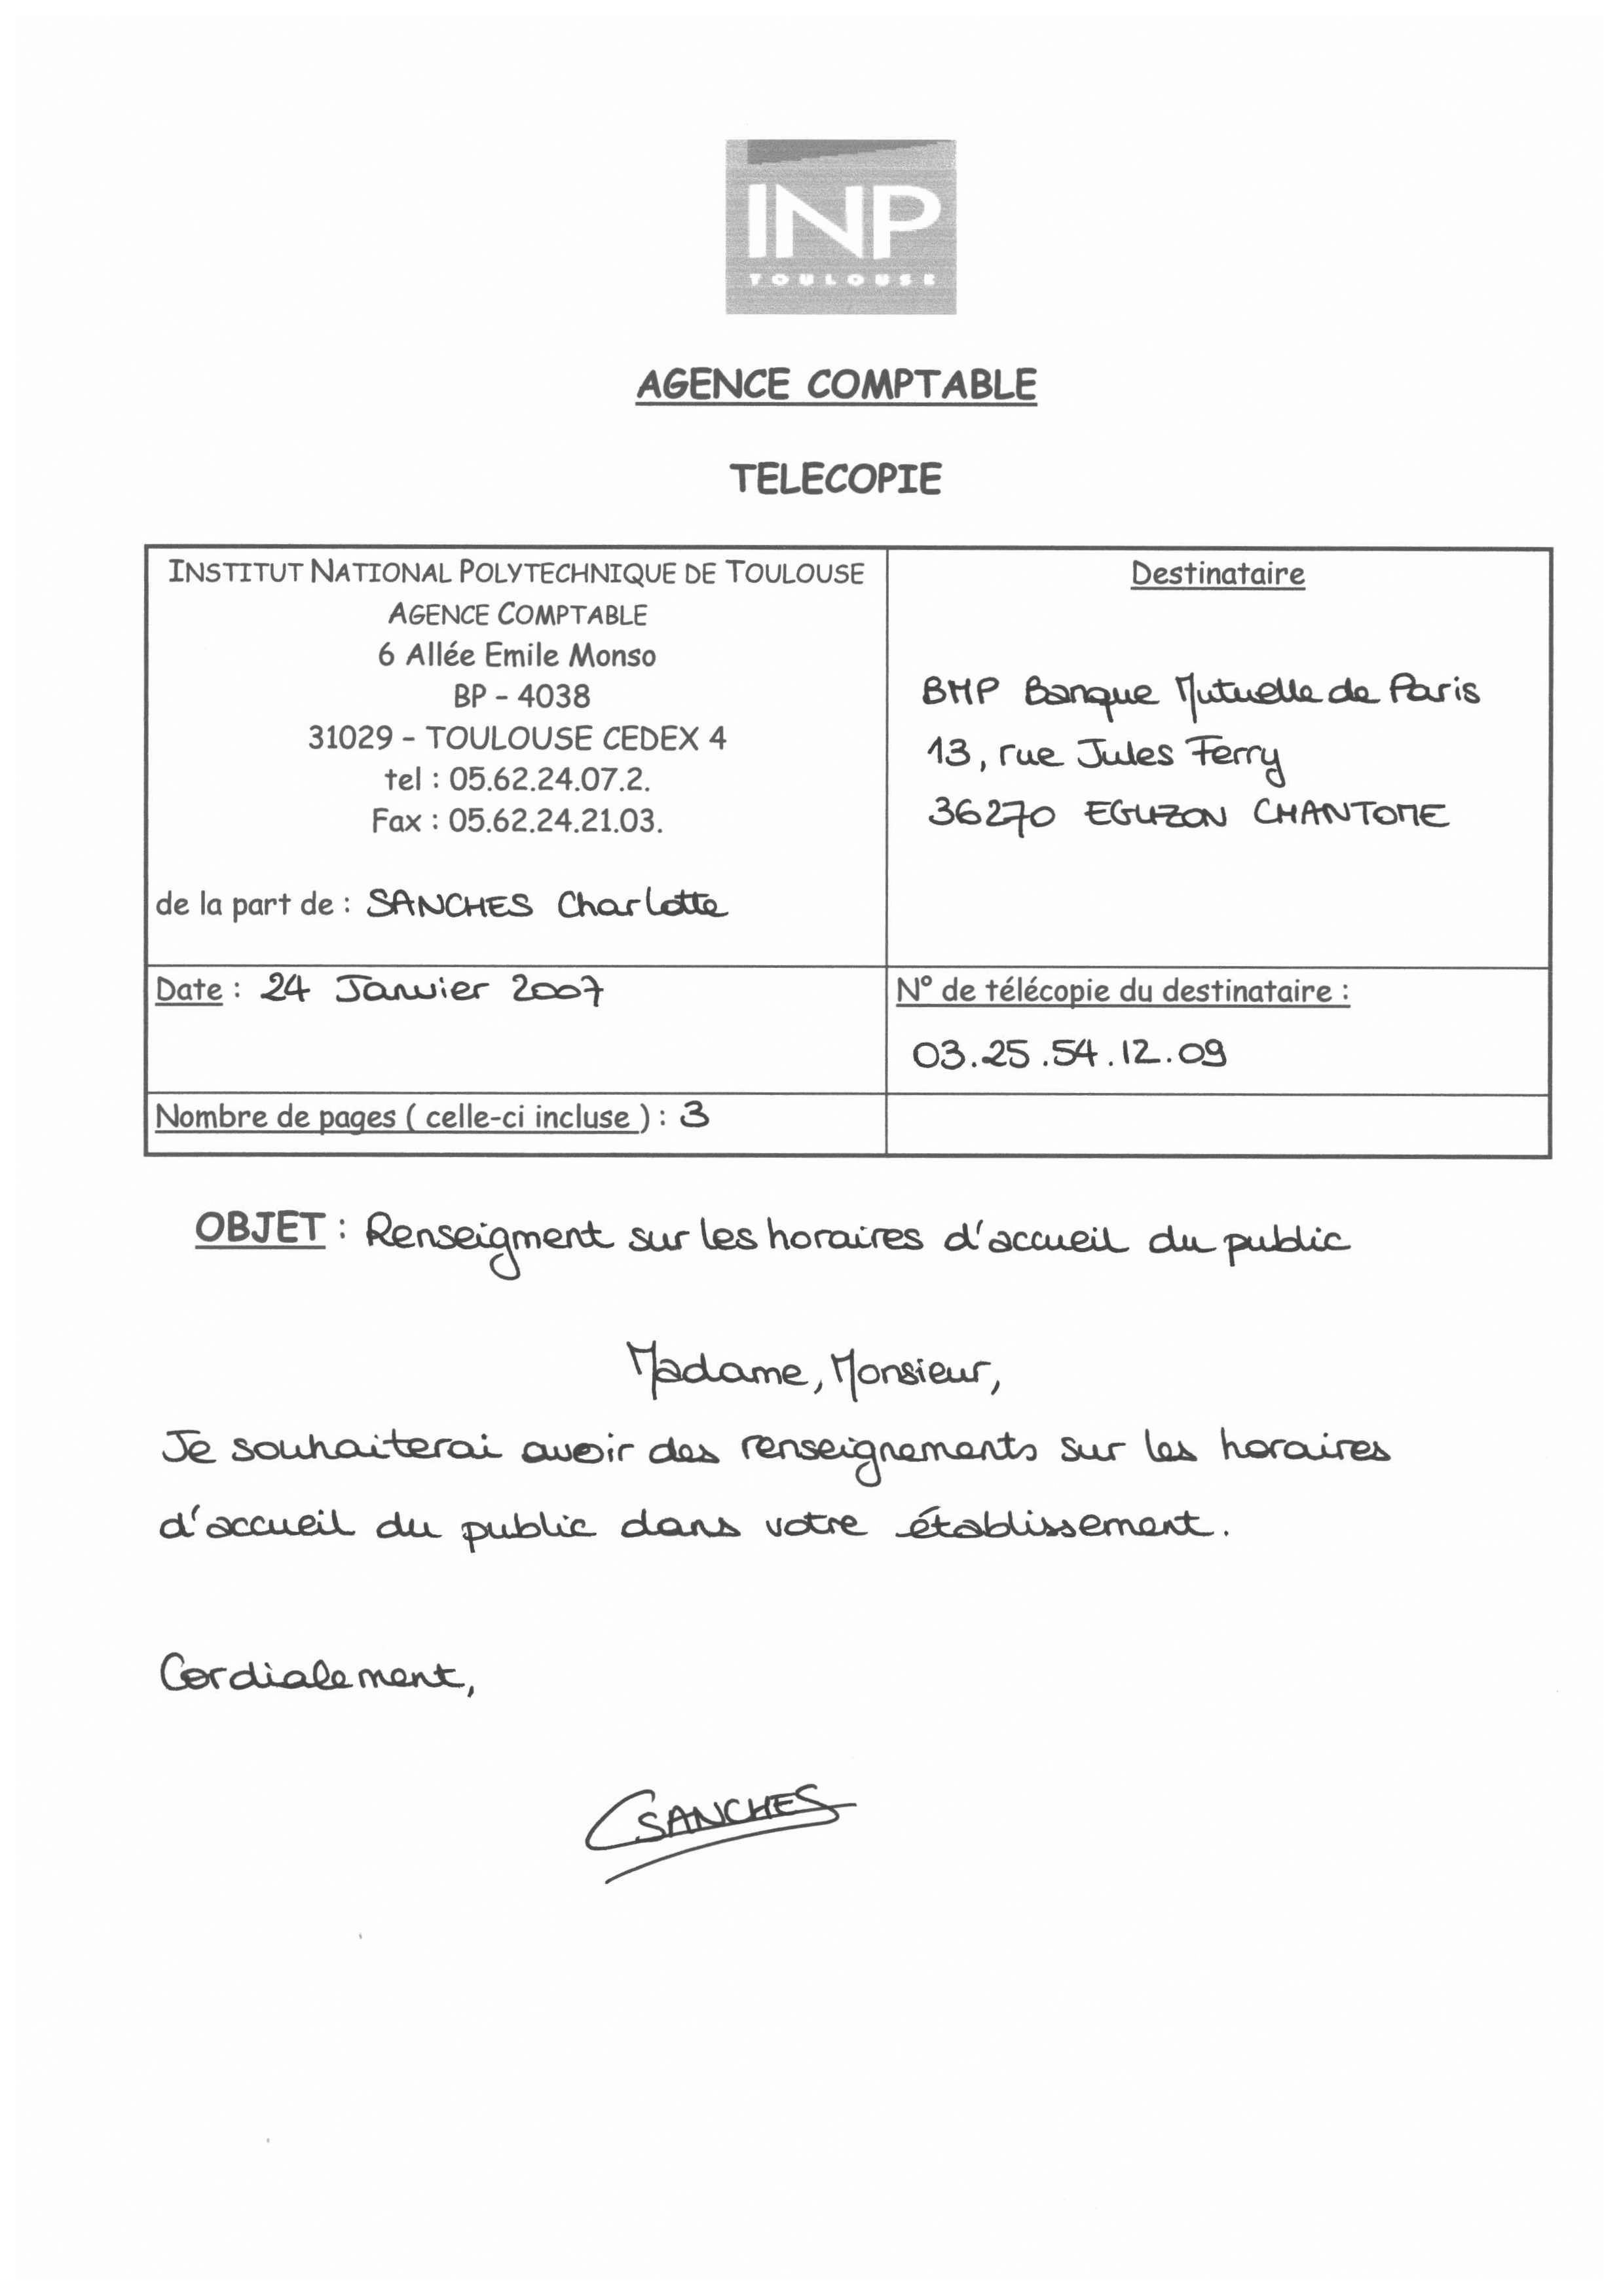 INP
TOULOUSE
AGENCE COMPTABLE
TELECOPIE
INSTITUT NATIONAL POLYTECHNIQUE DE TOULOUSE
AGENCE COMPTABLE
6 Allée Emile Monso
BP - 4038
31029 - TOULOUSE CEDEX 4
tel : 05.62.24.07.2.
Fax : 05.62.24.21.03.
de la part de : SANCHES Charlotte
Destinataire
BMP Banque Mutuelle de Paris
13, rue Jules Ferry
36270 EGUZON CHANTOME
Date : 24 Janvier 2007
N° de télécopie du destinataire :
03.25.54.12.09
Nombre de pages ( celle-ci incluse ) : 3
OBJET : Renseigment sur les horaires d'accueil du public
Madame, Monsieur,
Je souhaiterai avoir des renseignements sur les horaires
d'accueil du public dans votre établissement.
Cordialement,
CSANCHES